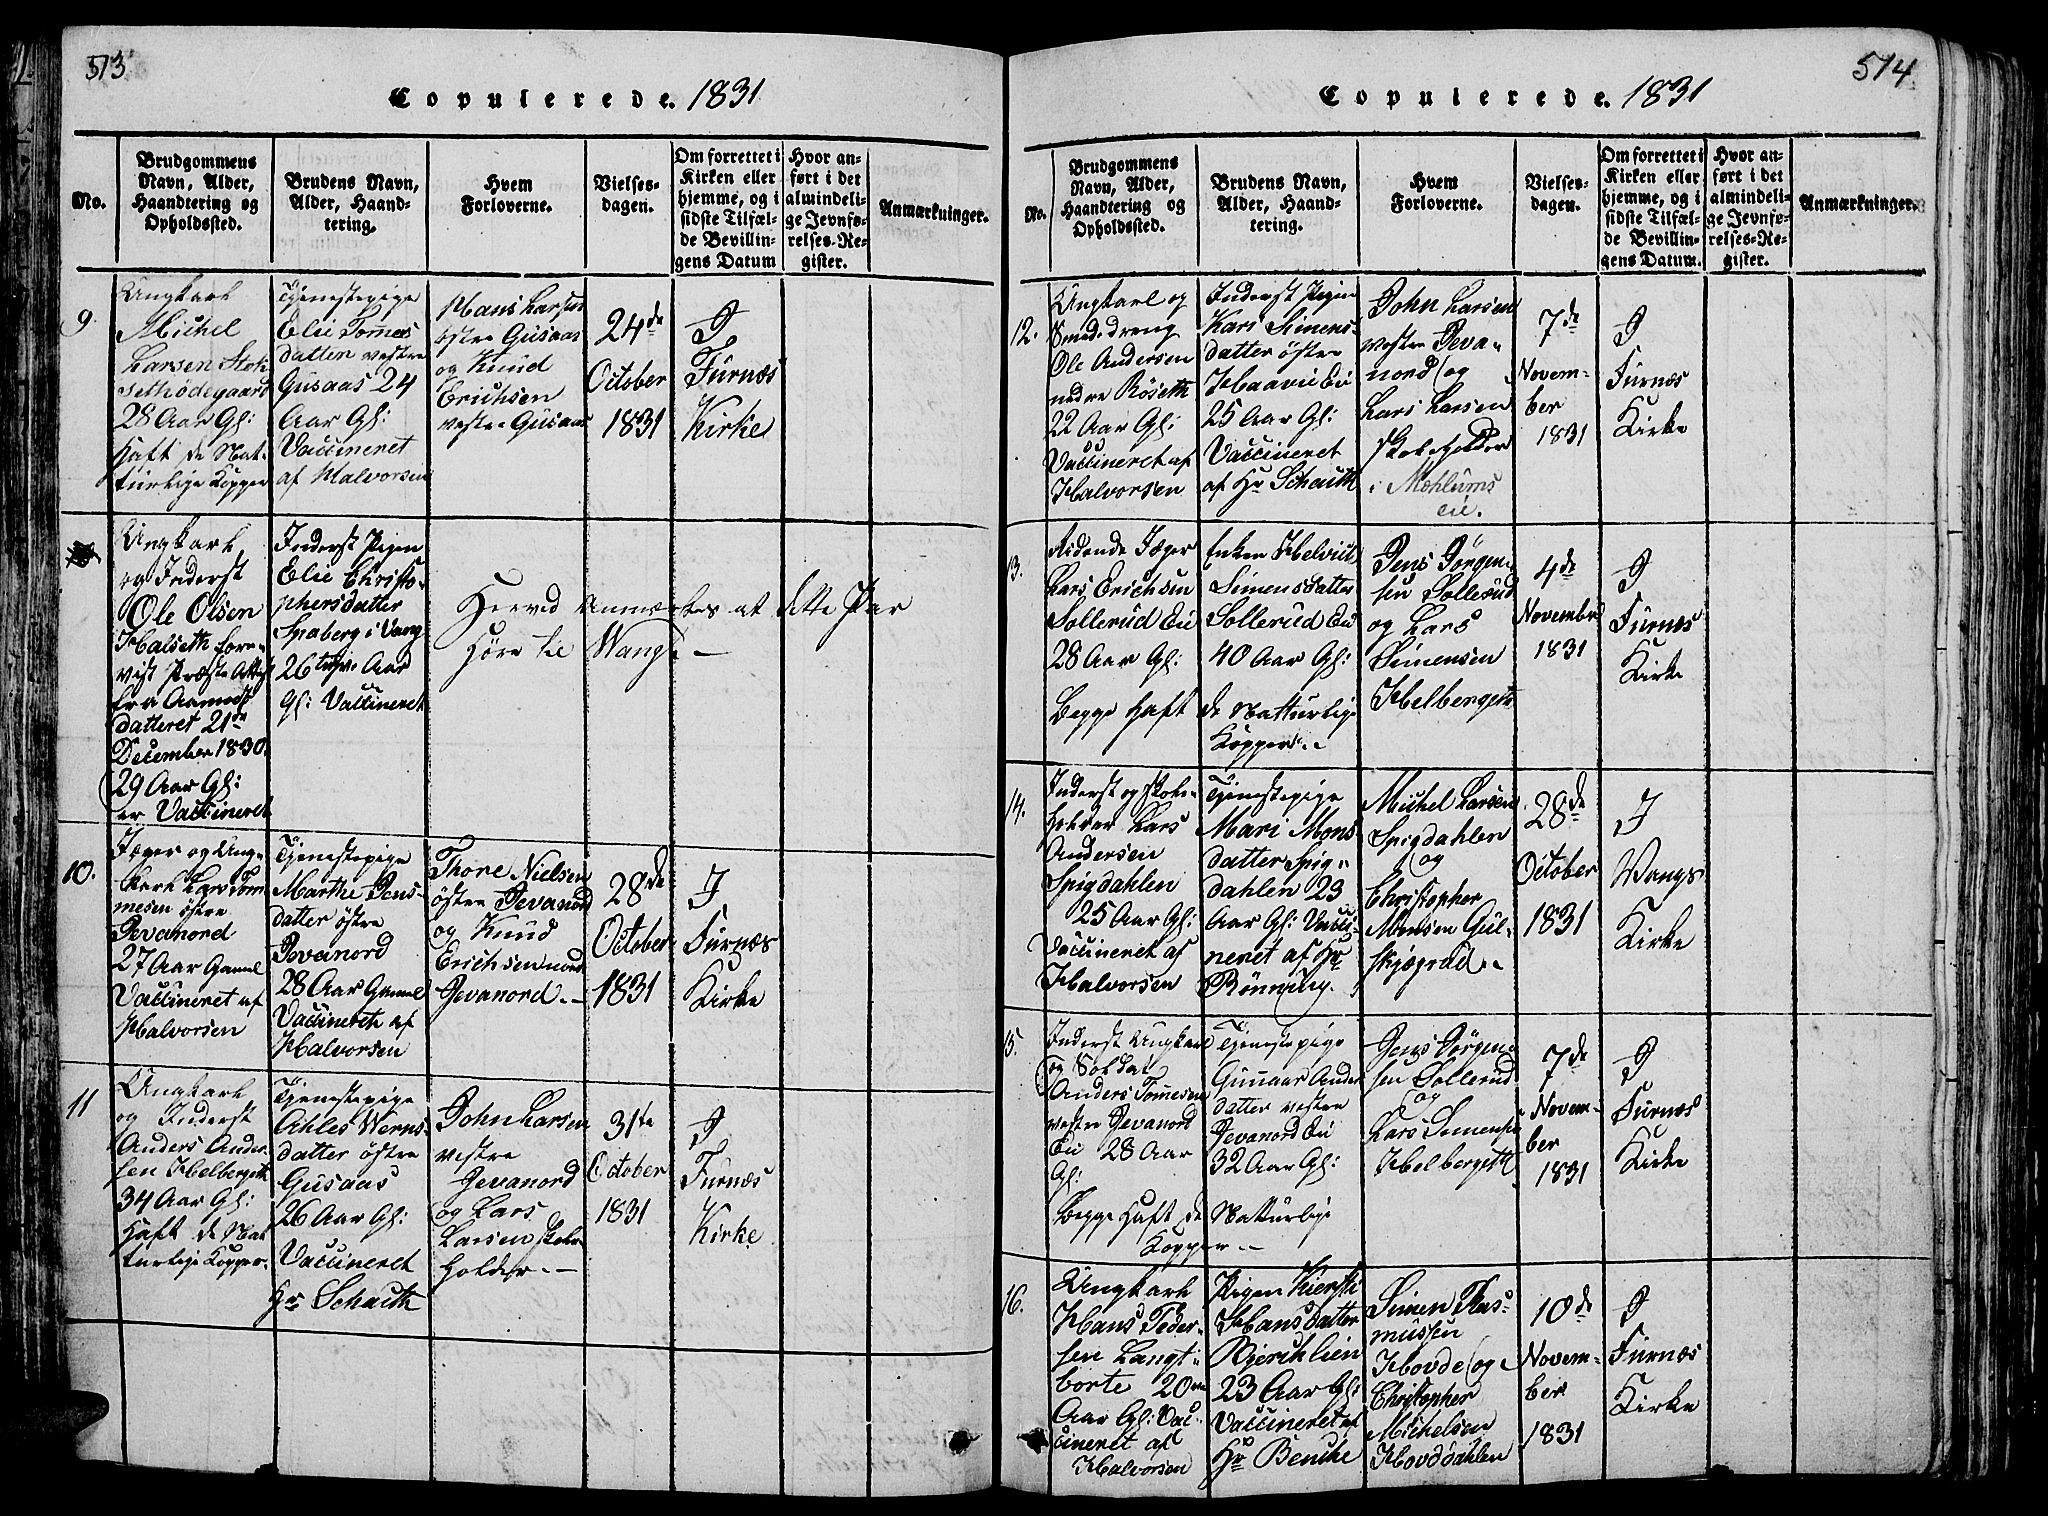 513
Copulerede. 1831
No.
Brudgommens
Navn, Alder,
Haandtering og
Opholdssted.
Brudens Navn,
Alder, Haand-
tering.
Hvem
Forloverne.
Vielses-
dagen.
Om forrettet i
Kirken eller
hjemme, og i
sidste Tilfæl-
de Bevillin-
gens Datum
Hvor an-
ført i det
almindeli-
ge Jevnfø-
relses-Re-
gister.
Anmærkninger.
9
Ungkarl
Michel
Larsen
28 Aar Gl:
haft de Nat-
turlige Kopper
Tjenestepige
Elie Tommes
datter vestre
Gusaas 24
Aar Gl:
Vaccineret
af Halvorsen
Hans Larsen
østre Gusaas
og Knud
Erichsen
vestre Gusaas
24de
October
1831
I
Furnæs
Kirke
Ungkarl
og Inderst
Ole Olsen
Halseth fore-
vist Præste Attest
fra
datteret 21de
December 1830
29 Aar Gl:
er Vaccineret
Inderst Pigen
Elie Christo-
phersdatter
Spaberg i Vang
26 Aar
Gl: Vaccineret
Herved Anmærkes at dette Par
høre til Wang. —
10.
Jæger og Ung-
karl Lars Tom-
mesen østre
Jevanord
27 Aar Gammel
Vaccineret af
Halvorsen
Tjenestepige
Marthe Jens-
datter østre
Jevanord
28 Aar Gammel
Vaccineret af
Halvorsen
Thore Nielsen
østre Jevanord
og Knud
Erichsen nord
Jevanord. —
28de
October
1831
I
Furnæs
Kirke
11
Ungkarl
og Inderst
Anders Ander-
sen Helbergeth
34 Aar Gl:
haft de Nat
turlige Kopper.
Tjenestepige
Ahles Werns-
datter østre
Gusaas
26 Aar Gl:
Vaccineret
Hr Schauth
John Larsen
vestre
Jevanord
og Lars
Larsen Skole-
holder. —
31te
October
1831
I
Furnæs
Kirke
514
Copulerede. 1831
No.
Brudgommens
Navn, Alder,
Haandtering og
Opholdssted.
Brudens Navn,
Alder, Haand-
tering.
Hvem
Forloverne.
Vielses-
dagen.
Om forrettet i
Kirken eller
hjemme, og i
sidste Tilfæl-
de Bevillin-
gens Datum.
Hvor an-
ført i det
almindeli-
ge Jevnfø-
relses-Re-
gister.
Anmærkninger.
12.
Ungkarl og
Smededreng
Ole Andersen
nedre Röseth
22 Aar Gl:
Vaccineret af
Halvorsen
Inderst Pigen
Kari Simens-
datter østre
Haavie Eie
25 Aar Gl:
Vaccineret
af Hr Schauth
John Larsen
vestre Jeva-
nord og
Lars Larsen
Skoleholder
i Mæhlums
eie.
7de
Novem-
ber
1831
I
Furnæs
Kirke
13.
Ridende Jæger
Lars Erichsen
Sollerud Eie
28 Aar Gl:
Enken Helvict
Simensdatter
Sollerud Eie
40 Aar Gl:
Begge haft de Natturlige
Kopper. -
Jens Jörgen-
sen Sollerud
og Lars
Simensen
Helbergeth
4de
November
1831
I
Furnæs
Kirke
14.
Inderst og Skole-
holder Lars
Andersen
Spigdahlen
25 Aar Gl:
Vaccineret af
Halvorsen
Tjenestepige
Mari Mons
datter Spig-
dahlen 23
Aar Gl: Vacci-
neret af Hr
Rönning.
Michel Larsen
Spigdahlen
og
Christopher
Monsen Gul-
skjægrud. -
28de
October
1831
I
Wangs
Kirke
15.
Inderst Ungkarl
og Soldat
Anders Tomesen
vestre Jevanord
Eie 28 Aar
Gl:
Tjenestepige
Gunaar Anders
datter vestre
Jevanord Eie
32 Aar Gl:
Begge haft de Natturlige
Kopper. —
Jens Jörgen-
sen Sollerud
og
Lars Simensen
Helbergeth
7de
Novem-
ber
1831
I
Furnæs
Kirke
16.
Ungkarl
Hans Peder-
sen Langt-
borte 20
Aar Gl: Vac-
cineret af
Halvorsen
Pigen Kiersti
Hansdatter
Bjerchlien
23 Aar Gl:
Vaccineret af
Hr Benche
Simen Ras-
mussen
Hovde og
Christopher
Michelsen
Hovddahlen
10de
Novem-
ber
1831
I
Furnæs
Kirke